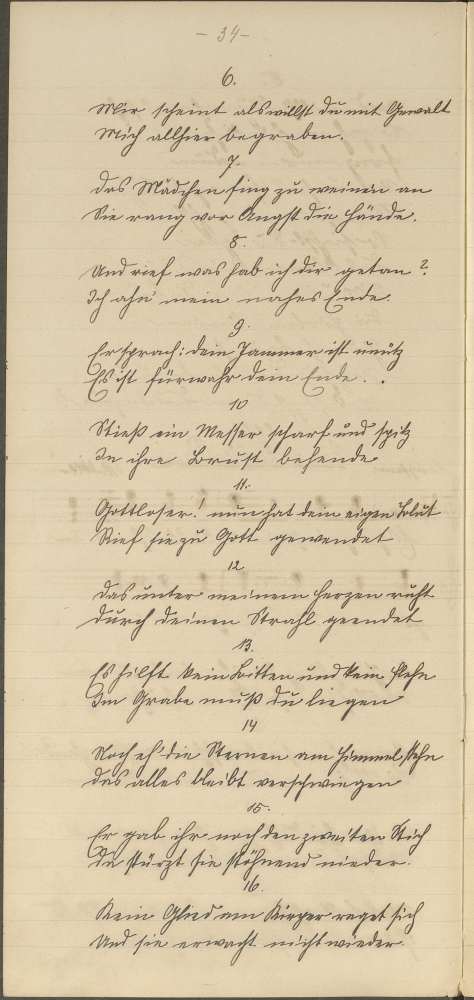 - 34 -
6.
Mir scheint als willst du mit Gewalt
Mich allhier begraben.
7.
Das Mädchen fing zu weinen an
Sie rang vor Angst die Hände.
8.
Und rief was hab ich dir getan?
Ich ahn' mein nahes Ende.
9.
Er sprach: dein Jammer ist unnütz
Es ist fürwahr dein Ende.
10
Stieß ein Messer scharf und spitz
In ihre Brust behende
11.
Gottloser! nun hat dein eigen Blut
Rief sie zu Gott gewendet
12
Das unter meinem Herzen ruht
Durch deinen Strahl geendet
13.
Es hilft kein Bitten und kein Flehn
Im Grabe muß du liegen
14
Noch eh' die Sternen am Himmel stehn
Das alles bleibt verschwiegen
15.
Er gab ihr noch den zweiten Stich
Da stürzt sie stöhnend nieder.
16.
Kein Glied am Körper reget sich
Und sie erwacht nicht wieder